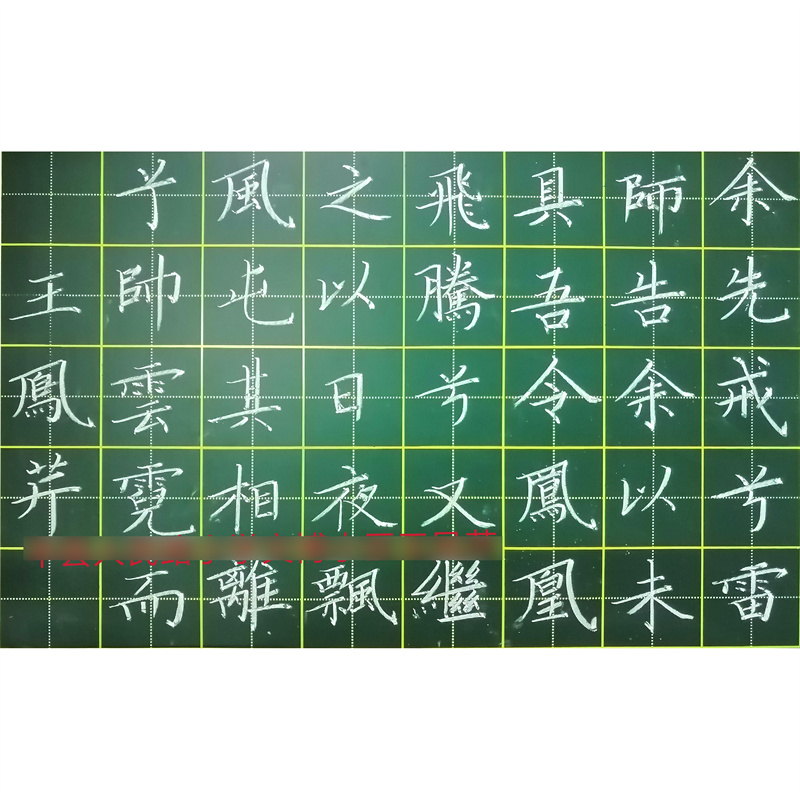 余先戒兮雷
師告余以未
具吾令鳳凰
飛騰兮又繼
之以日夜飄
風屯其相離
兮帥雲霓而
王鳳芹